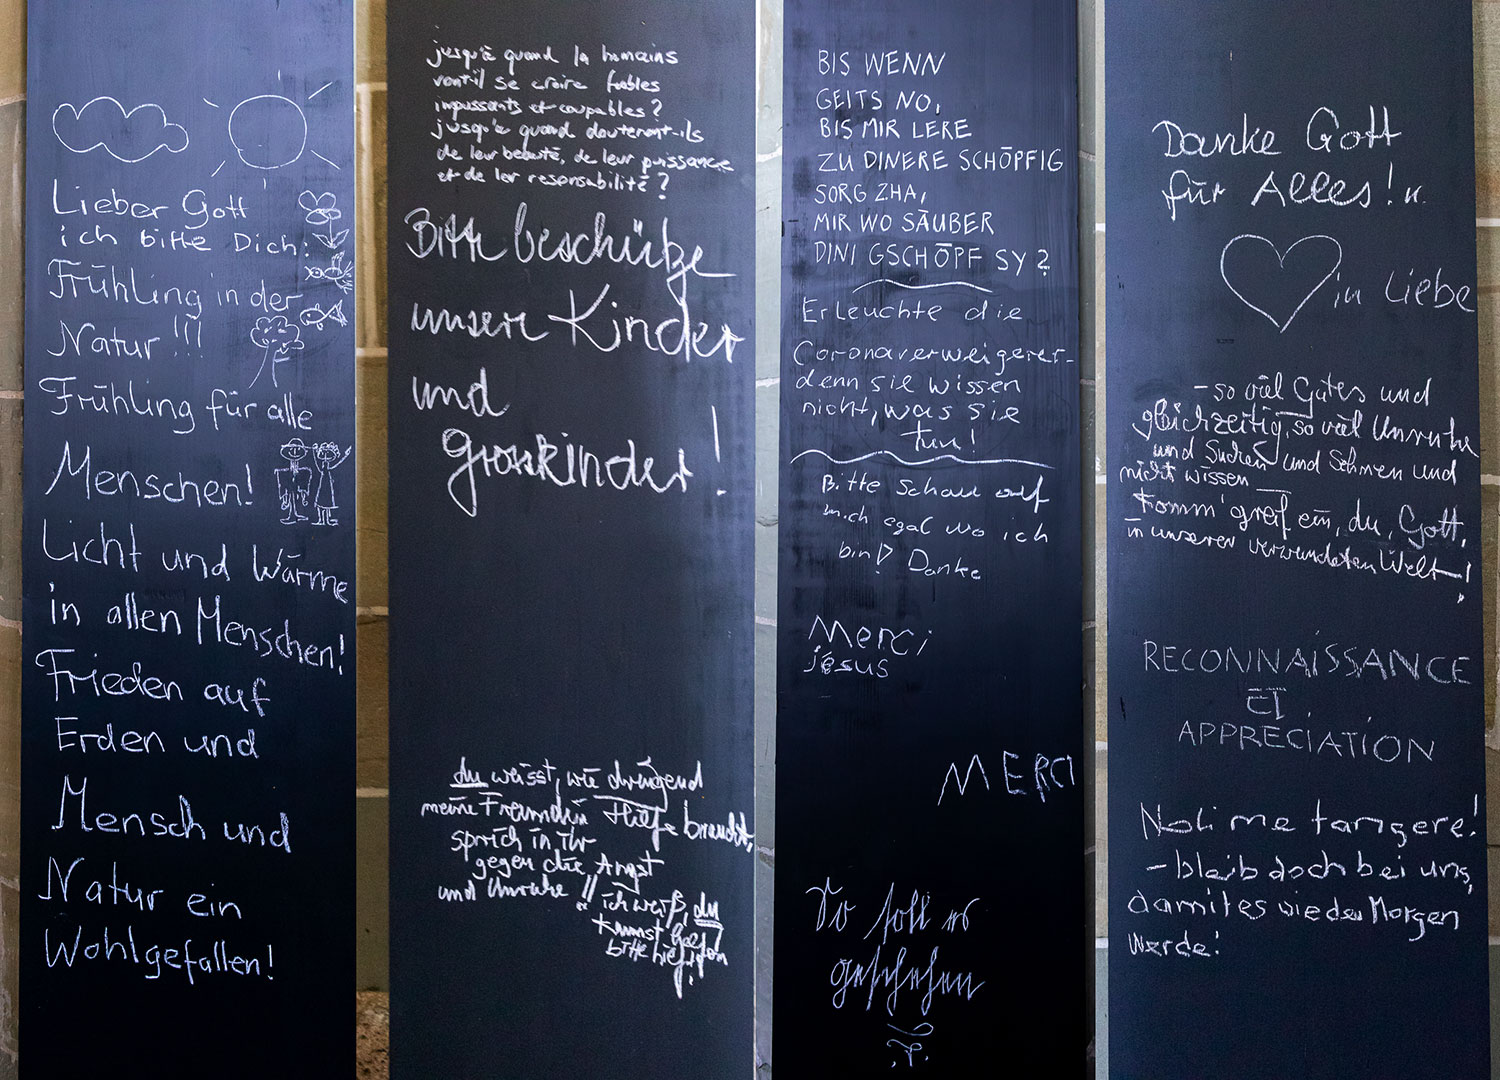 Lieber Gott
ich bitte Dich:
Frühling in der
Natur!!!
Frühling für alle
Menschen!
Licht und Wärme
in allen Menschen!
Frieden auf
Erden und
Mensch und
Natur ein
Wohlgefallen!
jusqu'à quand la humains
vont-il se croire faibles
impuissants et coupables?
jusqu'à quand douteront-ils
de leur beauté, de leur puissance
et de ler resonsabilité?
Bitte beschütze
unsere Kinder
und
Grosskinder!
du weisst, wie dringend
meine Freundin Hilfe braucht,
sprich in ihr
gegen die Angst
und Unruhe!! ich weiß, du
kannst helfen
bitte hilf!
BIS WENN
GEITS NO,
BIS MIR LERE
ZU DINERE SCHÖPFIG
SORG ZHA,
MIR WO SÄUBER
DINI GSCHÖPF SY?
Erleuchte die
Coronaverweigerer-
denn sie wissen
nicht, was sie
tun!
Bitte Schau auf
mich egal wo ich
bin! Danke
Merci
jesus
MERCI
So soll es
geschehen
Danke Gott
für Alles! u.
in Liebe
- so viel Gutes und
gleichzeitig, so viel Unruhe
und Suchen und Sehnen und
nicht wissen
Komm' greif ein, du, Gott,
in unserer verwundeten Welt!
RECONNAiSSANCE
ET
APPRECiATiON
Noli me tangere!
- bleib doch bei uns,
damit es wieder Morgen
werde!